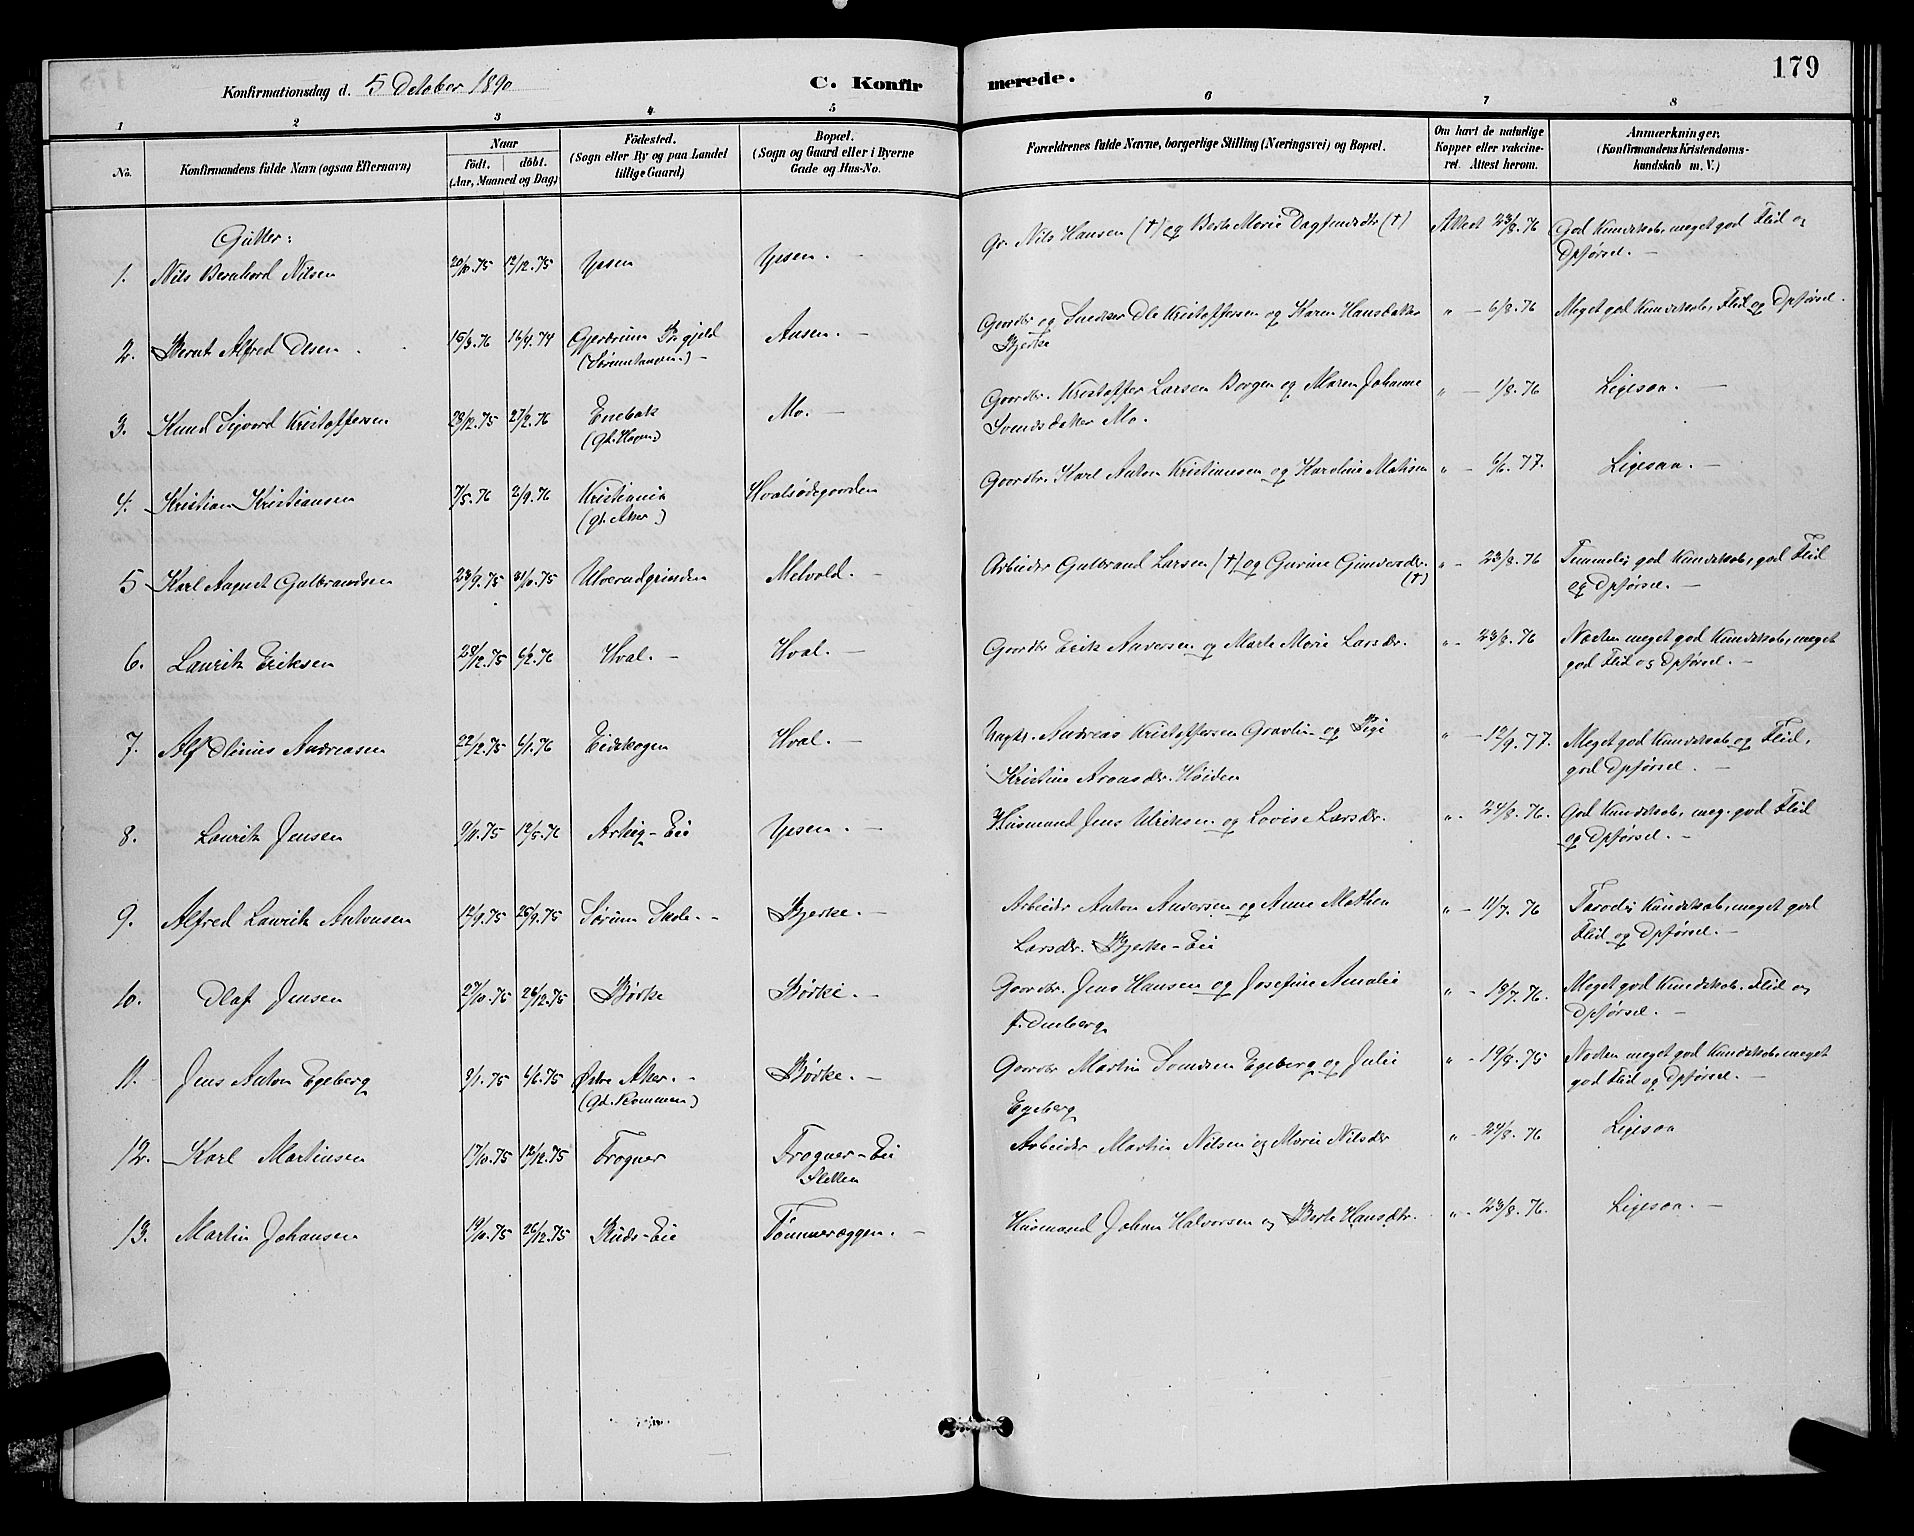 179
Konfirmationsdag d. 5 October 1890
C. Konfirmerede.
1 2 3 4 5 6 7 8
No. Konfirmandens fulde Navn (ogsaa Efternavn) Naar født. døbt. (Aar, Maaned og Dag) Födested. (Sogn eller By og paa Landet tillige Gaard) Bopæl. (Sogn og Gaard eller i Byerne Gade og Hus-No. Forældrenes fulde Navne, borgerlige Stilling (Næringsvei) og Bopæl. Om havt de naturlige Kopper eller vakcineret. Attest herom. Anmærkninger. (Konfirmandens Kristendomskundskab m. V.)
Gutter:
1. Nils Bernhard Nilsen 20/10.75 12/12.75 Ypsen Ypsen. – Gr. Nils Hansen (†) og Berte Marie Dagfinsdtr (†) Attest 23/8.76 God Kundskab, meget god Flid og
Opførsel. –
2. Bernt Alfred Olsen 15/3.76 16/4.74 Gjerdrum Prgjeld Ausen. – Gaardbr og Snedker Ole Kristoffersen og Karen Hansdatter " – 6/8.76 Meget god Kundskab, Flid og Opførsel.
Bjerke
3. Knud Sigvard Kristoffersen 23/12.75 27/2.76 Enebak Mo. – Gaardbr. Kristoffer Larsen Borgen og Maren Johanne " – 1/8.76 Ligesaa. –
(Gd. Hagen) Svendsdatter Mo.
4. Kristian Kristiansen 7/5.76 2/9.76 Kristiania Hvalsødegaarden Gaardbr. Karl Anton Kristiansen og Karoline Matisen " – 6/6.77. Ligesaa. –
(gl. Aker)
5 Karl August Gulbrandsen 23/9.75 31/10.75 Ulverudgrinden Melvold. – Arbeider Gulbrand Larsen (†) og Gurine Gundersdr. (†) " – 23/8.76 Temmelig god Kundskab, god Flid
og Opførsel. –
6. Lauritz Eriksen 28/12.75 6/2.76 Hval. – Hval. – Gaardbr Erik Andersen og Marte Marie Larsdr. " – 23/8.76 Næsten meget god Kundskab, meget
god Flid og Opførsel. –
7. Alf Olinius Andreasen 22/12.75 6/1.76 Eidskogen Hval. – Ungkr. Andreas Kristoffersen Gravlin og Pige " – 12/9.77. Meget god Kundskab og Flid,
Kristine Aronsdr. Høiden god Opførsel. –
8. Lauritz Jensen 9/11.75 12/5.76 Arteig-Eie Ypsen. – Husmand Jens Ulriksen og Lovise Larsdr. " – 24/8.76. God Kundskab, meg. god Flid
og Opførsel. –
9. Alfred Lauritz Antonsen 12/9.75 26/9.75 Sørum Skole. – Bjerke. – Arbeider Anton Andersen og Anne Mathea " – 11/7.76 Taalelig Kundskab, meget god
Larsdr. Bjerke-Eie Flid og Opførsel. –
10. Olaf Jensen 27/10.75 26/12.75 Børke Børke. – Gaardbr. Jens Hansen og Josefine Amalie " – 13/7.76. Meget god Kundskab. Flid og
f. Dueberg Opførsel. –
11. Jens Anton Egeberg 9/1.75 6/6.75 Østre Aker. – Børke. – Gaardbr Martin Svendsen Egeberg og Julie " – 19/8.75 Næsten meget god Kundskab, meget
(Gd. Rommen) Egeberg god Flid og Opførsel. –
12. Karl Martinsen 17/10.75 12/12.75 Frogner Frogner-Eie Arbeider Martin Nilsen og Marie Nilsdr " – 24/8.76 Ligesaa
Sletten
13. Martin Johansen 19/10.75 26/12.75 Ruds-Eie Tømmeræggen. – Husmand Johan Halvorsen og Berte Hansdtr. " – 23/8.76. Ligesaa. –